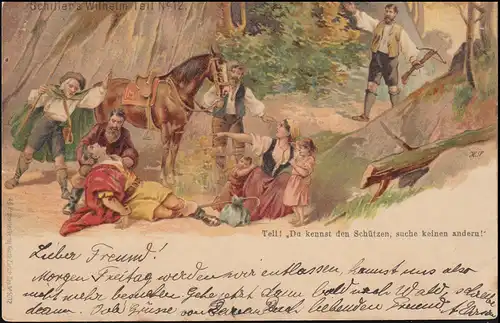 Schiller's Wilhelm Tell No 12.
Tell! „Du kennst den Schützen, suche keinen andern!"
Lieber Freund!
Morgen Freitag werden wir entlassen, kannst uns also
nicht mehr besuchen. Gehe jetzt dann bald nach Wald, schreibe
daann. Viele Grüsse von Deinem Dich liebenden Freund